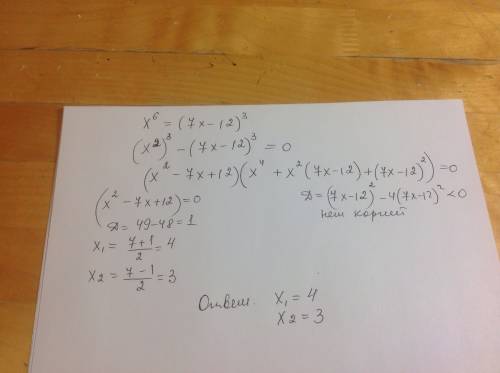 x⁶ = (7x-12)³
(x²)³ - (7x-12)³ = 0
(x² - 7x+12)(x⁴ + x²(7x-12)+(7x-12)²)=0
(x² - 7x+12)=0
D = 49-48 = 1
x₁ = (7+1)/2 = 4
x₂ = (7-1)/2 = 3
D = (7x-12)² - 4(7x-12)² < 0
нет корней
Ответ. x₁ = 4
x₂ = 3